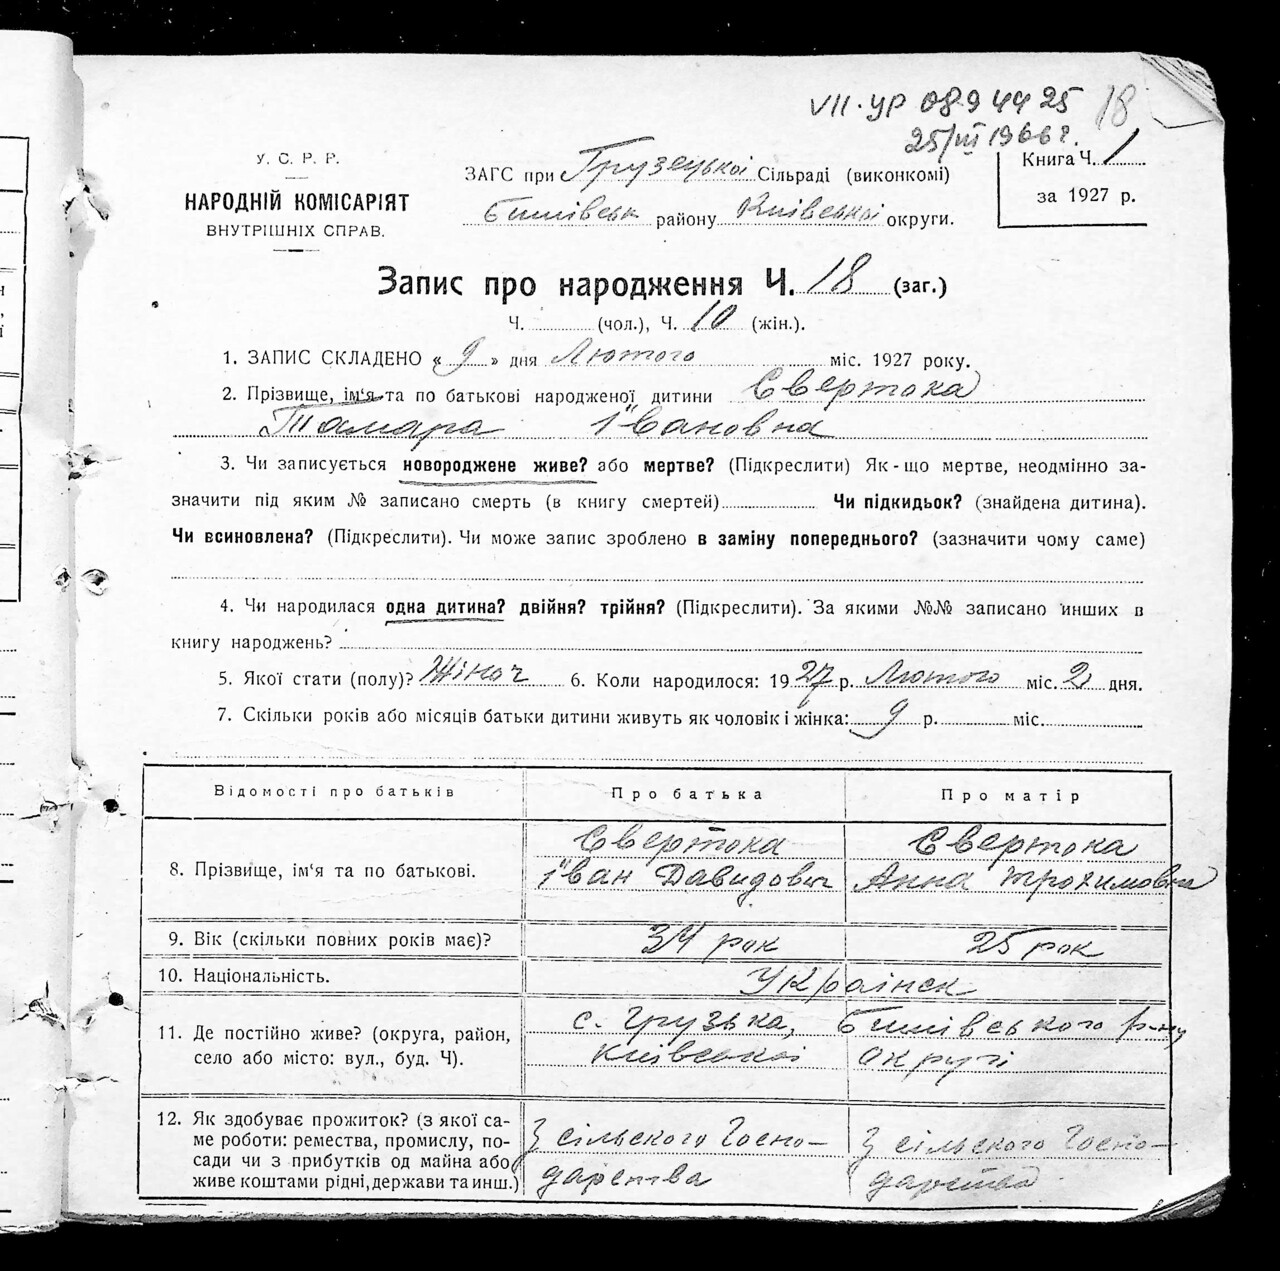 VII-УР 0894425
18
25/III 1966 г.
У. С. Р. Р.
НАРОДНІЙ КОМІСАРІЯТ
ВНУТРІШНІХ СПРАВ.
ЗАГС при Грузецькоі Сільраді (виконкомі)
Бишівськ району Київськоі округи.
Книга Ч. 1
за 1927 р.
Запис про народження Ч. 18 (заг.)
Ч. (чол.), Ч. 10 (жін.).
1. ЗАПИС СКЛАДЕНО « 9 » дня Лютого міс. 1927 року.
2. Прізвище, ім'я та по батькові народженої дитини Євертока
Тамара Івановна
3. Чи записується новороджене живе? або мертве? (Підкреслити) Як-що мертве, неодмінно за-
значити під яким № записано смерть (в книгу смертей) Чи підкидьок? (знайдена дитина).
Чи всиновлена? (Підкреслити). Чи може запис зроблено в заміну попереднього? (зазначити чому саме)
4. Чи народилася одна дитина? двійня? трійня? (Підкреслити). За якими №№ записано инших в
книгу народжень?
5. Якої стати (полу)? Жіноч 6. Коли народилося: 1927 р. Лютого міс. 2 дня.
7. Скільки років або місяців батьки дитини живуть як чоловік і жінка: 9 р. міс.
Відомості про батьків Про батька Про матір
8. Прізвище, ім'я та по батькові. Євертока Іван Давидович Євертока Анна Трохимовна
9. Вік (скільки повних років має)? 34 рок 25 рок
10. Національність. Украінск
11. Де постійно живе? (округа, район, с. Грузька, Бишівського р-ну
село або місто: вул., буд. Ч). Київськоі округі
12. Як здобуває прожиток? (з якої са-
ме роботи: ремества, промислу, по-
сади чи з прибутків од майна або
живе коштами рідні, держави та инш.)
З сільського Госпо-
дарства
З сільського Госпо-
дарства